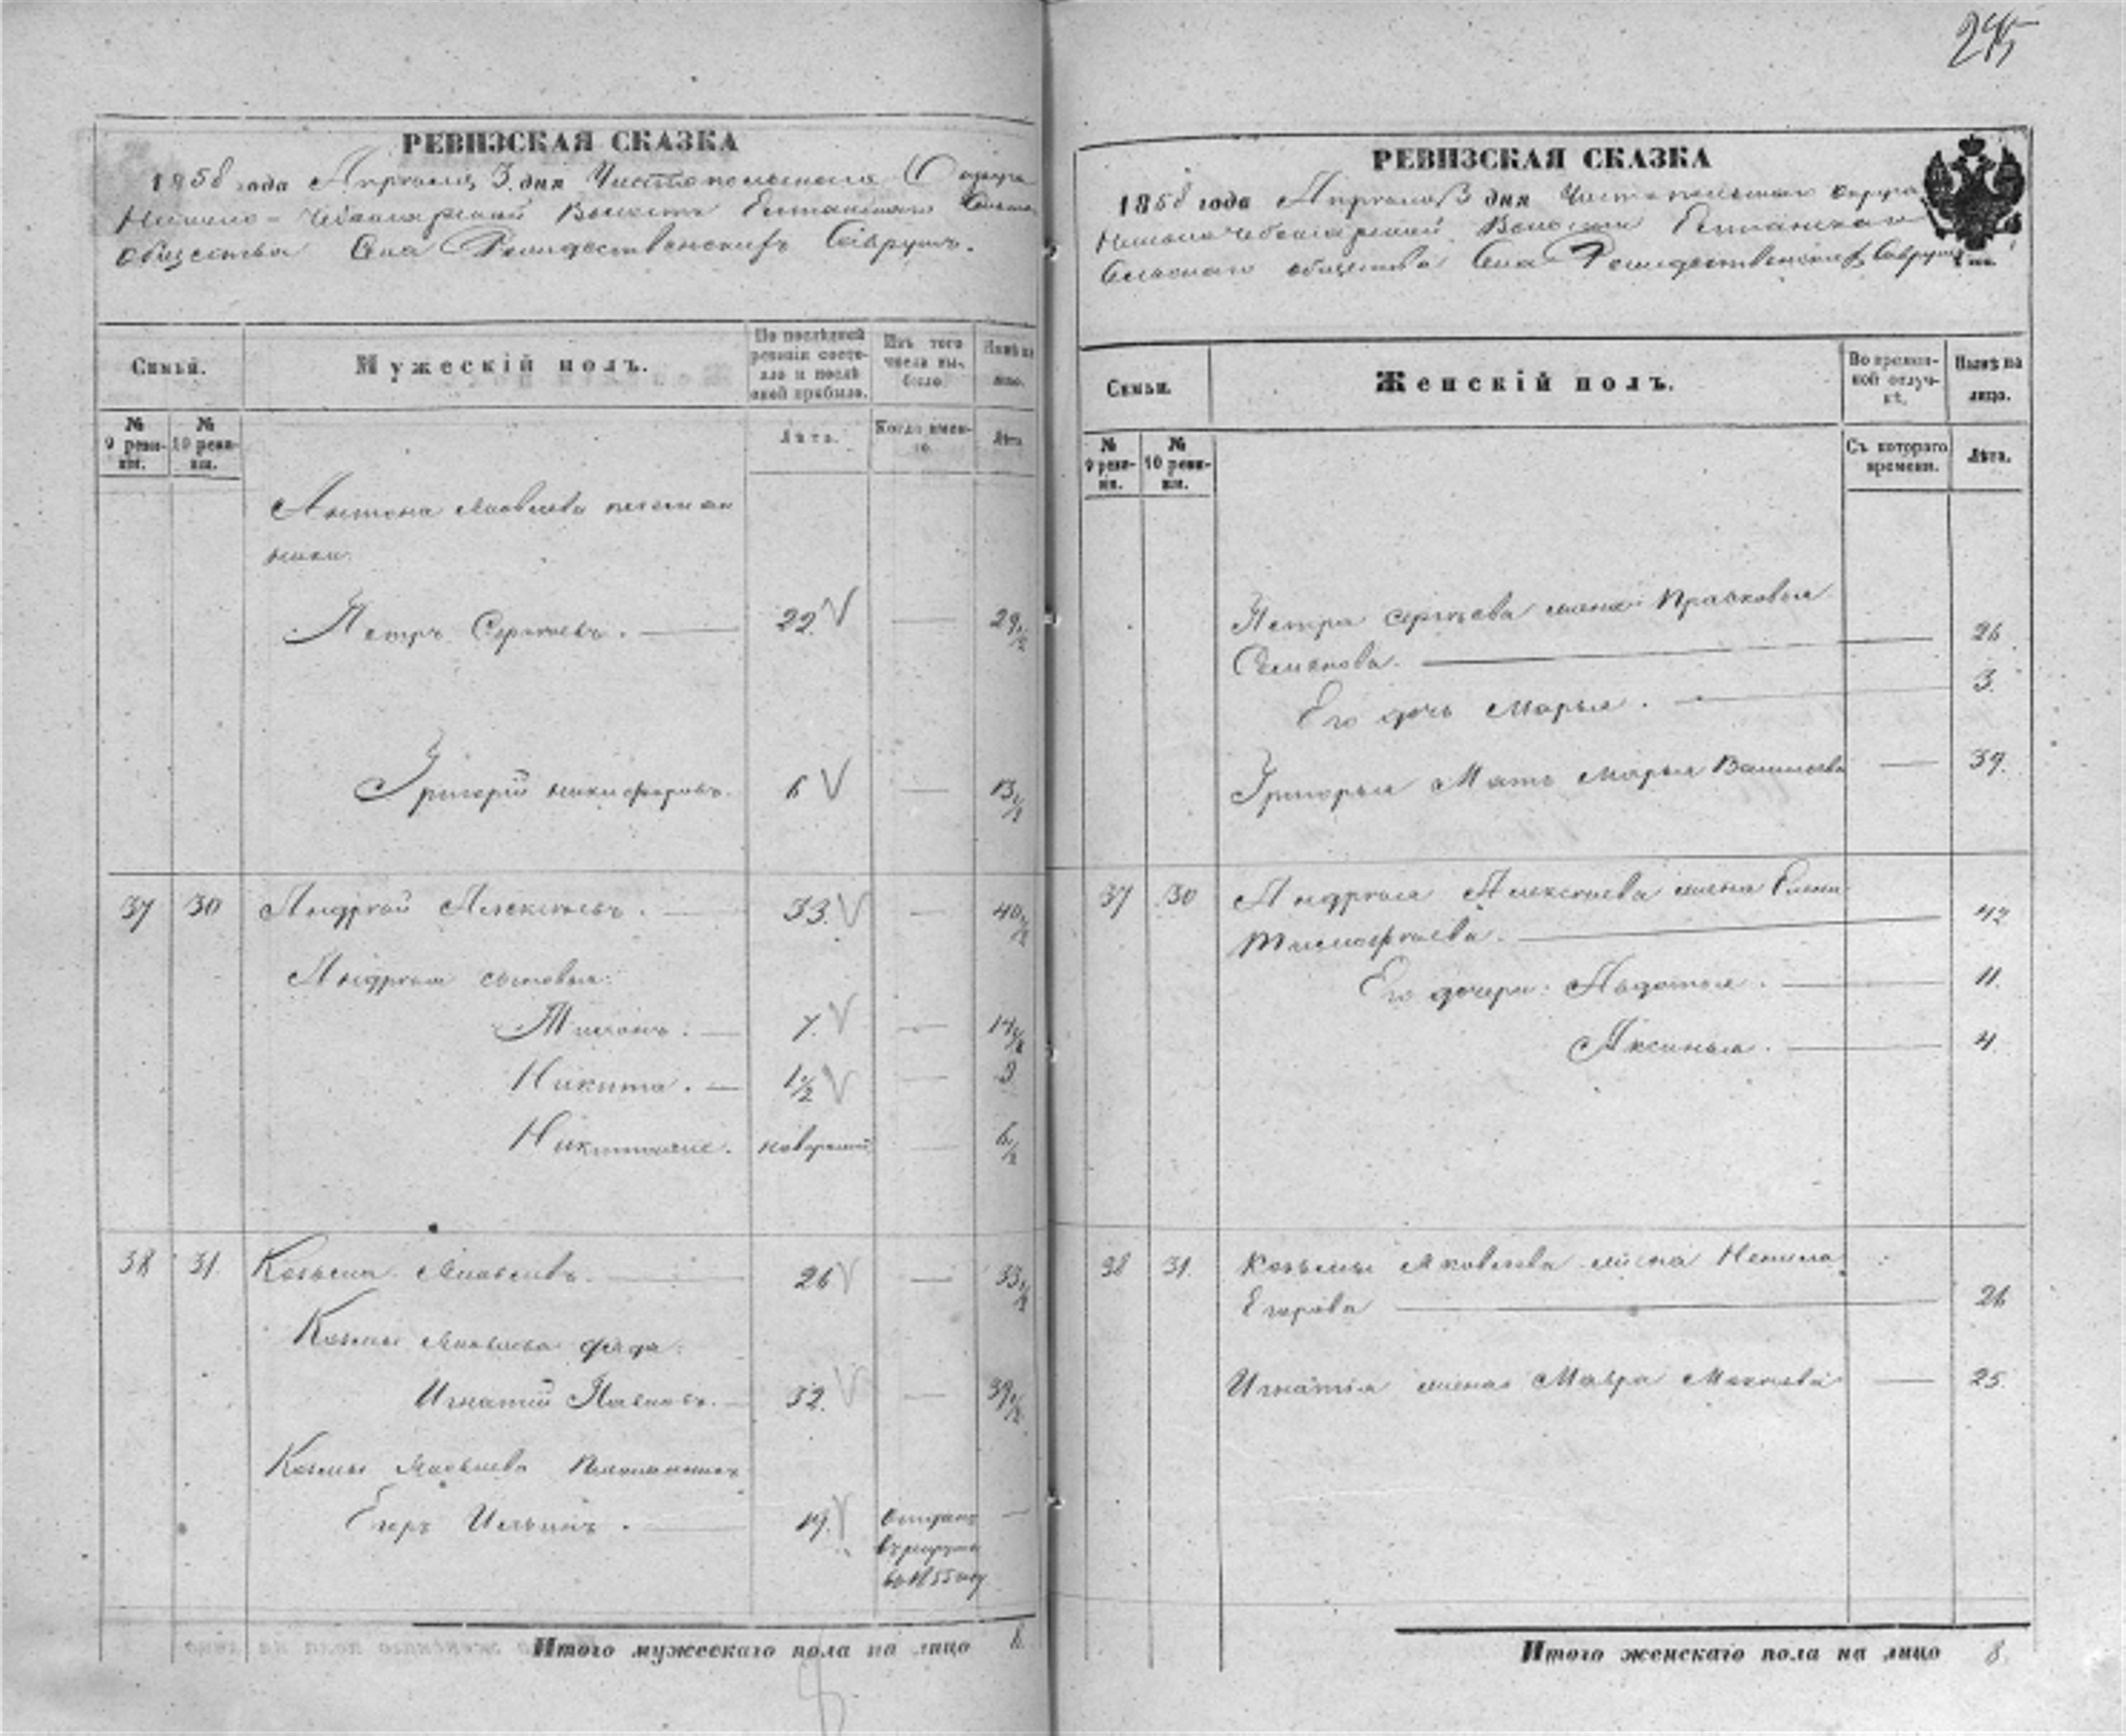 245
РЕВИЗСКАЯ СКАЗКА
1858 года Апреля 3 дня Чистопольскаго Округа
Волости Сельскаго
общества Села Рождественскихъ Саврушъ.
Семьи.
Мужескій полъ.
По послѣдней ревизіи состояло и послѣ оной прибыло.
Изъ того числа выбыло.
Нынѣ на лицо.
№ 9 ревизіи.
№ 10 ревизіи.
Лѣта.
Когда именно.
Лѣта
Антона Яковлева племян
ники:
Петръ Сергѣевъ. 22. — 29 1/2
Григорій Никифоровъ. 6 — 13 1/2
37 30 Андрей Алексѣевъ. 33. — 40 1/2
Андрея сыновья:
7. — 14 1/2
Никита. 1/2 —
новорожд —
38 31. Козьма Яковлевъ. 26 — 33 1/2
Козьмы Яковлева дядя:
Игнатій Павловъ. 32. — 39 1/2
Козьмы Яковлева Племянникъ
Егоръ Ильинъ. 19. Отданъ —
въ рекруты
въ 1855 году
Итого мужескаго пола на лицо 8
РЕВИЗСКАЯ СКАЗКА
1858 года Апреля 3 дня Чистопольскаго округа
Волости
Сельскаго общества Села Рождественскихъ Саврушъ
Семьи.
Женскій полъ.
Во временной отлучкѣ.
Нынѣ на лицо.
№ 9 ревизіи.
№ 10 ревизіи.
Съ котораго времени.
Лѣта.
Петра Сергѣева жена Прасковья
Семенова. 26
Его дочь Марья. 3.
Григорья Мать Марья Васильева — 39.
37 30 Андрея Алексѣева жена Елена
Тимофѣева. 42
Его дочери: Авдотья. 11.
Аксинья. 4.
38 31. Козьмы Яковлева жена Ненила
Егорова 26
Игнатія жена Мавра — 25.
Итого женскаго пола на лицо 8